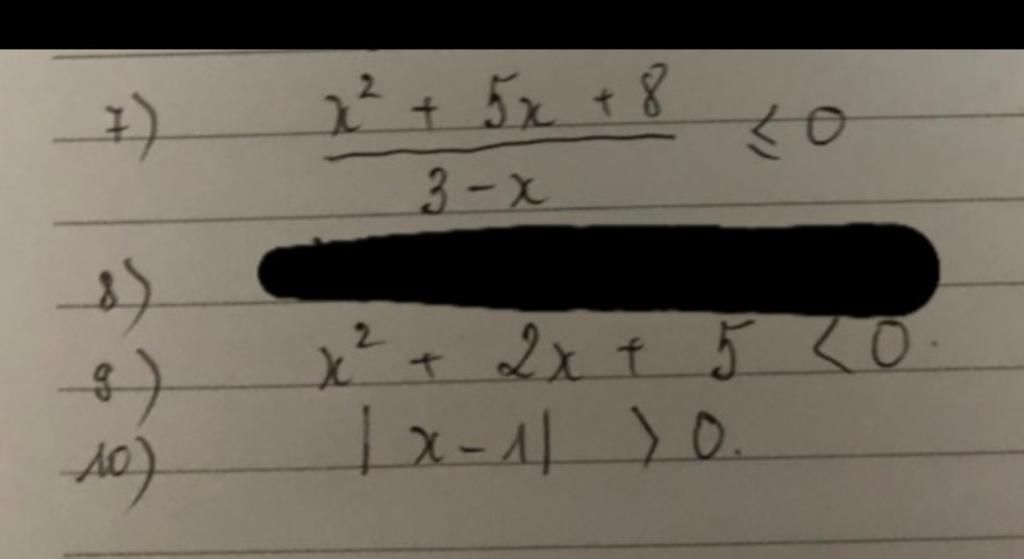 7) x² + 5x + 8
3 - x ≤ 0
8)
9) x² + 2x + 5 < 0.
10) |x - 1| > 0.